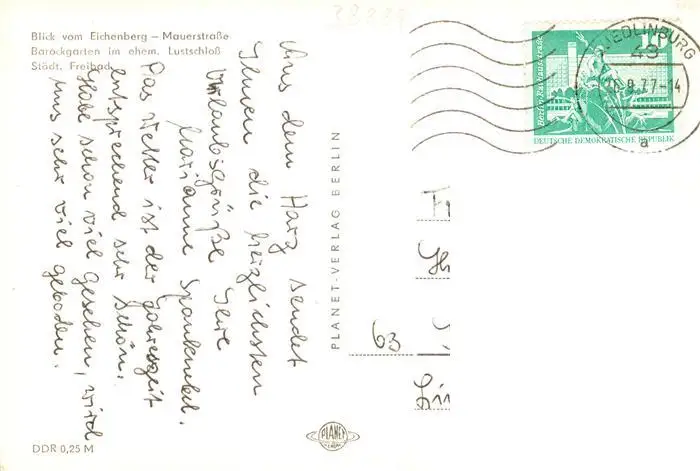 Blick vom Eichenberg – Mauerstraße
Barockgarten im ehem. Lustschloß
Städt. Freibad
Aus dem Harz sendet
Ihnen die herzlichsten
Urlaubsgrüße Ihre
Marianne
Das Wetter ist der Jahreszeit
entsprechend sehr schön.
Habe schon viel gesehen, wird
uns sehr viel geboten.
PLANET-VERLAG BERLIN
DDR 0,25 M
PLANET
QUEDLINBURG
43
.8.77-14
a
10
Berlin-Rathausstraße
DEUTSCHE DEMOKRATISCHE REPUBLIK
63